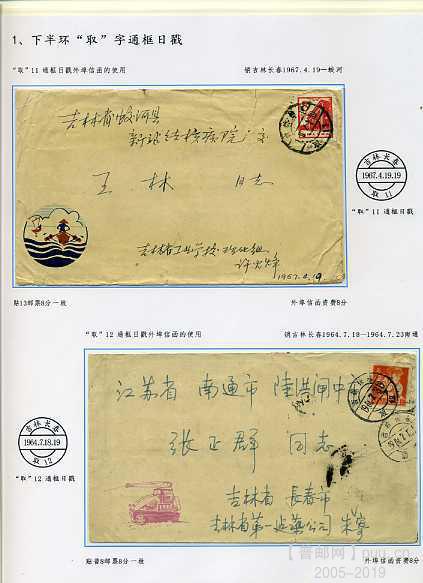 1、下半环“取”字通框日戳
“取”11 通框日戳外埠信函的使用
销吉林长春1967.4.19—蛟河
吉林省蛟河县
王 林 同志
1967.4.19
吉林长春
1967.4.19.19
取 11
“取”11 通框日戳
贴13邮票8分一枚
外埠信函资费8分
“取”12 通框日戳外埠信函的使用
销吉林长春1964.7.18—1964.7.23南通
江苏省 南通市 陆洪闸中
张正群 同志
吉林省 长春市
吉林省第一 公司
吉林长春
1964.7.18.19
取 12
“取”12 通框日戳
贴普8邮票8分一枚
外埠信函资费8分
2005-2019